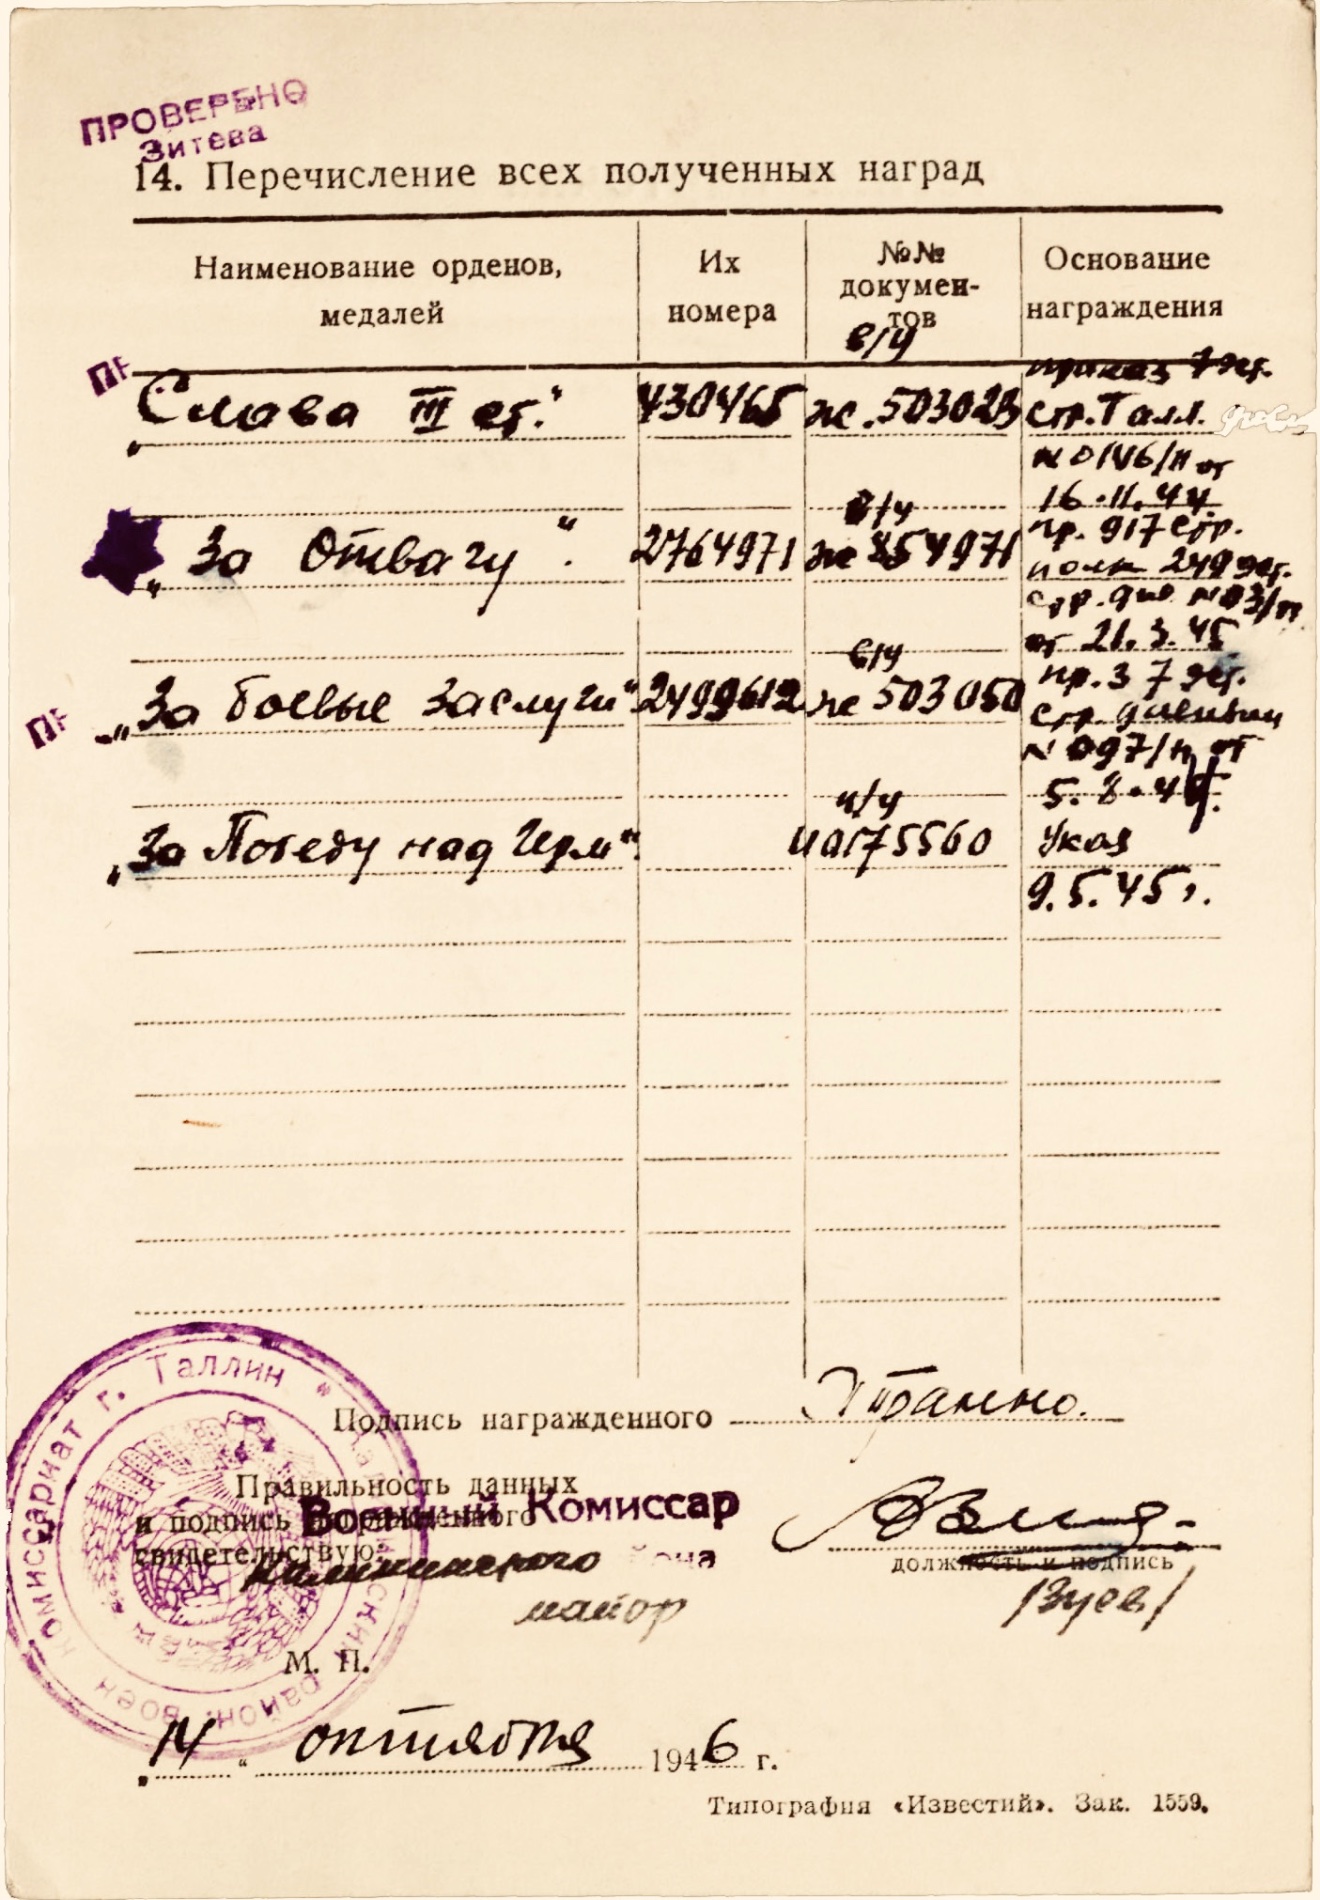 ПРОВЕРЕНО
Зитева
14. Перечисление всех полученных наград
Наименование орденов, медалей
Их номера
№№ докумен-тов
Основание награждения
в/у
приказ 7 эст.
„Слава III ст.“ 430465 ж. 503023 стр. Талл.
№ 0146/н от
16.11.44
в/у
пр. 917 стр.
„За Отвагу“. 2764971 же 854971 полк 249 эст.
стр. див. № 03/н
от 21.3.45
в/у
пр. 3 7 эст.
„За боевые заслуги“ 2499612 же 503050 стр. дивизии
№ 097/н от
5.8.44.
и/у
„За Победу над Герм“. 0175560 Указ
9.5.45 г.
Подпись награжденного
Правильность данных
и подпись награжденного
свидетельствую:
Военный Комиссар
Калининского района
должность и подпись
майор
/Зуев/
М. П.
„14“ октября 1946 г.
Типография «Известий». Зак. 1559.
комиссариат г. Таллин
район. воен